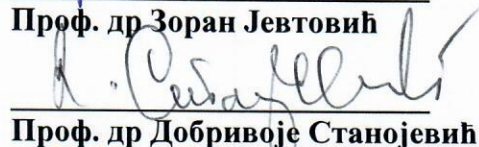 Проф. др Зоран Јевтовић
Проф. др Добривоје Станојевић